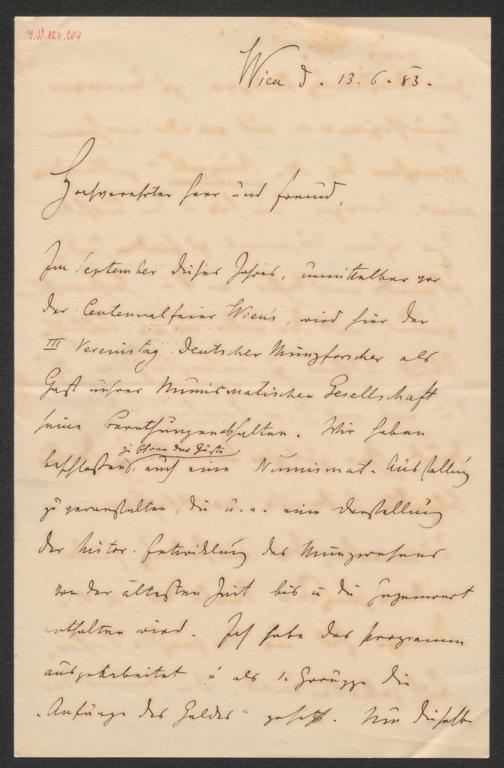 I.N. 124.204
Wien d. 13.6.83.
Hochverehrter Herr und Freund,
Im September dieses Jahres, unmittelbar vor
der Centennalfeier Wiens, wird hier der
III Vereinstag deutscher Münzforscher als
Gast unserer Numismatischen Gesellschaft
seine Berathungen abhalten. Wir haben
zu Ehren der Gäste
beschlossen, auch eine Numismat. Ausstellung
zu veranstalten, die u. a. eine Darstellung
der histor. Entwicklung des Münzwesens
von der ältesten Zeit bis in die Gegenwart
enthalten wird. Ich habe das Programm
ausgearbeitet u als 1. Gruppe die
„Anfänge des Geldes" gesetzt. Um dieselbe